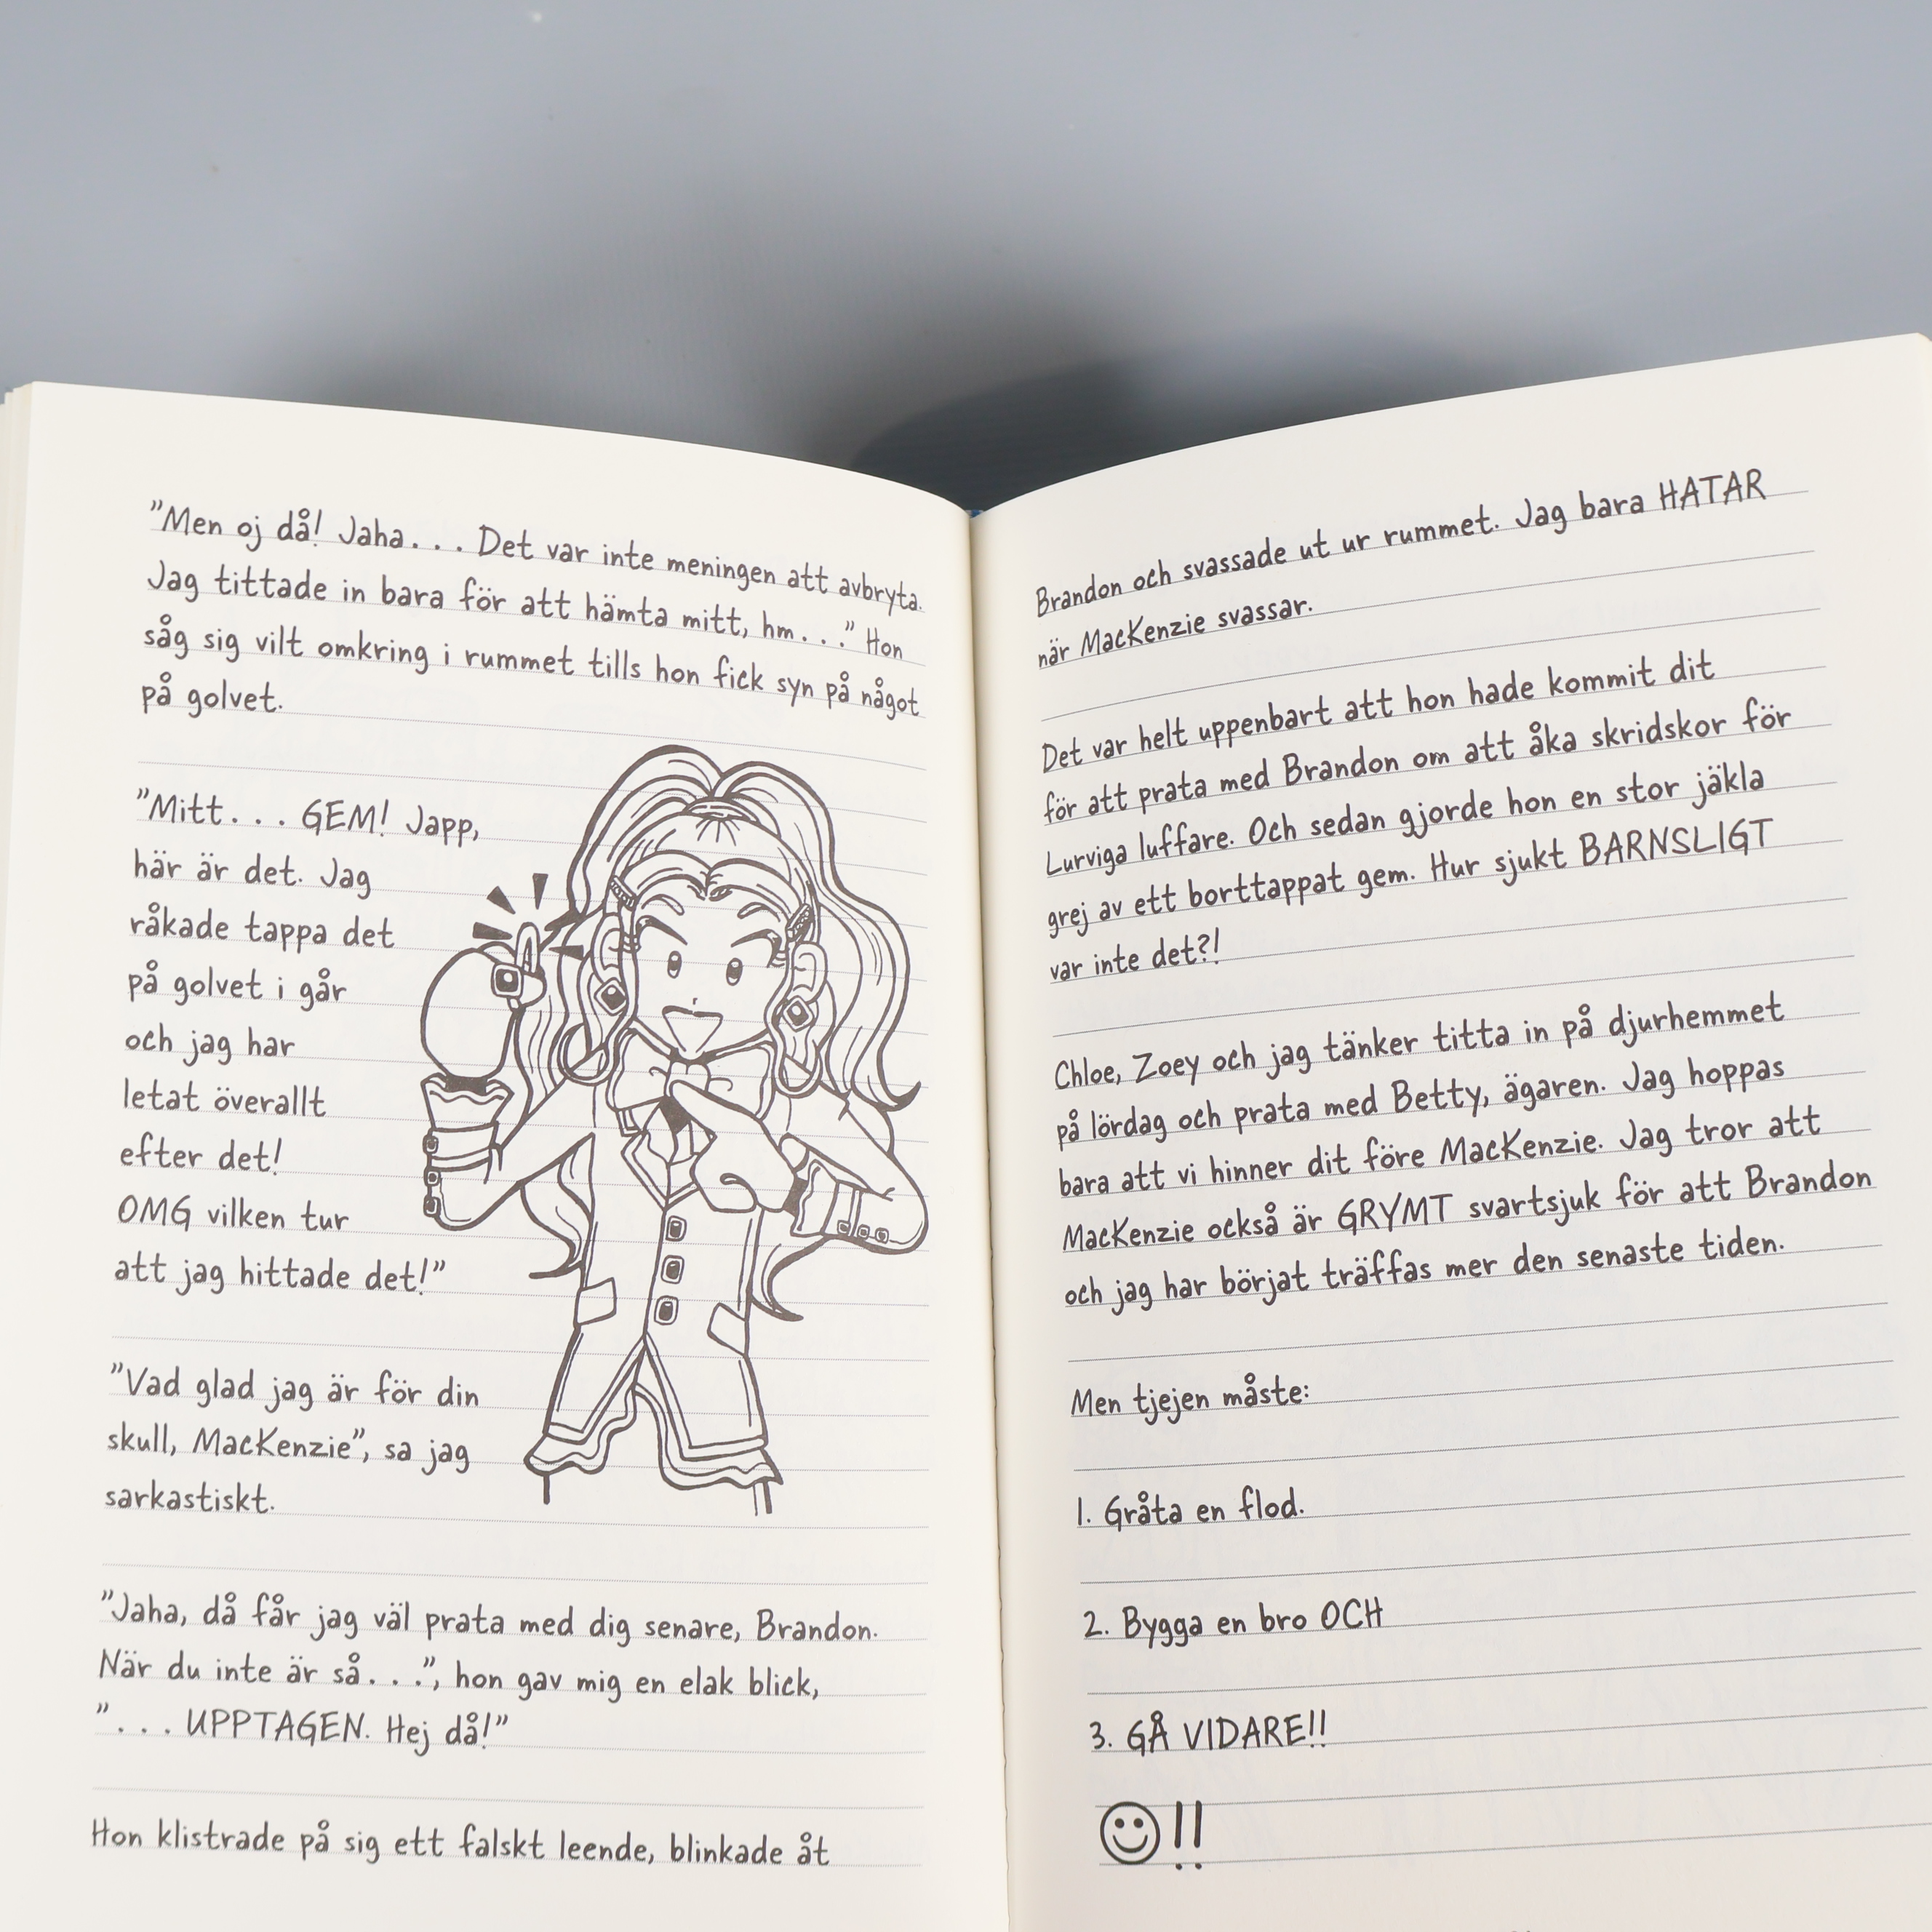 ”Men oj då! Jaha. . . Det var inte meningen att avbryta.
Jag tittade in bara för att hämta mitt, hm. . .” Hon
såg sig vilt omkring i rummet tills hon fick syn på något
på golvet.
”Mitt. . . GEM! Japp,
här är det. Jag
råkade tappa det
på golvet i går
och jag har
letat överallt
efter det!
OMG vilken tur
att jag hittade det!”
”Vad glad jag är för din
skull, MacKenzie”, sa jag
sarkastiskt.
”Jaha, då får jag väl prata med dig senare, Brandon.
När du inte är så. . .”, hon gav mig en elak blick,
”. . . UPPTAGEN. Hej då!”
Hon klistrade på sig ett falskt leende, blinkade åt
Brandon och svassade ut ur rummet. Jag bara HATAR
när MacKenzie svassar.
Det var helt uppenbart att hon hade kommit dit
för att prata med Brandon om att åka skridskor för
Lurviga luffare. Och sedan gjorde hon en stor jäkla
grej av ett borttappat gem. Hur sjukt BARNSLIGT
var inte det?!
Chloe, Zoey och jag tänker titta in på djurhemmet
på lördag och prata med Betty, ägaren. Jag hoppas
bara att vi hinner dit före MacKenzie. Jag tror att
MacKenzie också är GRYMT svartsjuk för att Brandon
och jag har börjat träffas mer den senaste tiden.
Men tjejen måste:
1. Gråta en flod.
2. Bygga en bro OCH
3. GÅ VIDARE!!
☺!!